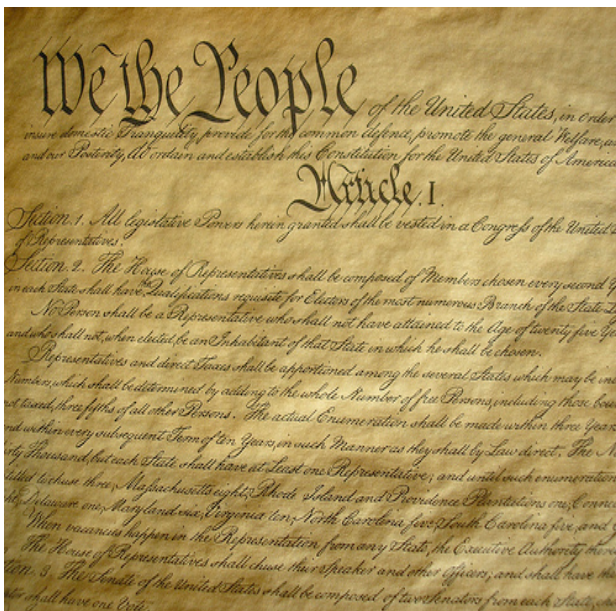 We the People of the United States, in order
insure domestic Tranquility, provide for the common defence, promote the general Welfare, an
and our Posterity, do ordain and establish this Constitution for the United States of America
Article. I.
Section. 1. All legislative Powers herein granted shall be vested in a Congress of the United
of Representatives.
Section. 2. The House of Representatives shall be composed of Members chosen every second Y
in each State shall have the Qualifications requisite for Electors of the most numerous Branch of the State L
No Person shall be a Representative who shall not have attained to the Age of twenty five Yea
and who shall not, when elected, be an Inhabitant of that State in which he shall be chosen.
Representatives and direct Taxes shall be apportioned among the several States which may be inc
Numbers, which shall be determined by adding to the whole Number of free Persons, including those bou
not taxed, three fifths of all other Persons. The actual Enumeration shall be made within three Years
and within every subsequent Term of ten Years, in such Manner as they shall by Law direct. The N
rty Thousand, but each State shall have at Least one Representative; and until such enumeration
titled to chuse three, Massachusetts eight, Rhode Island and Providence Plantations one, Connec
ght, Delaware one, Maryland six, Virginia ten, North Carolina five, South Carolina five, and
When vacancies happen in the Representation from any State, the Executive Authority there
The House of Representatives shall chuse their Speaker and other Officers; and shall have the
tion. 3. The Senate of the United States shall be composed of two Senators from each State,
ator shall have one Vote.